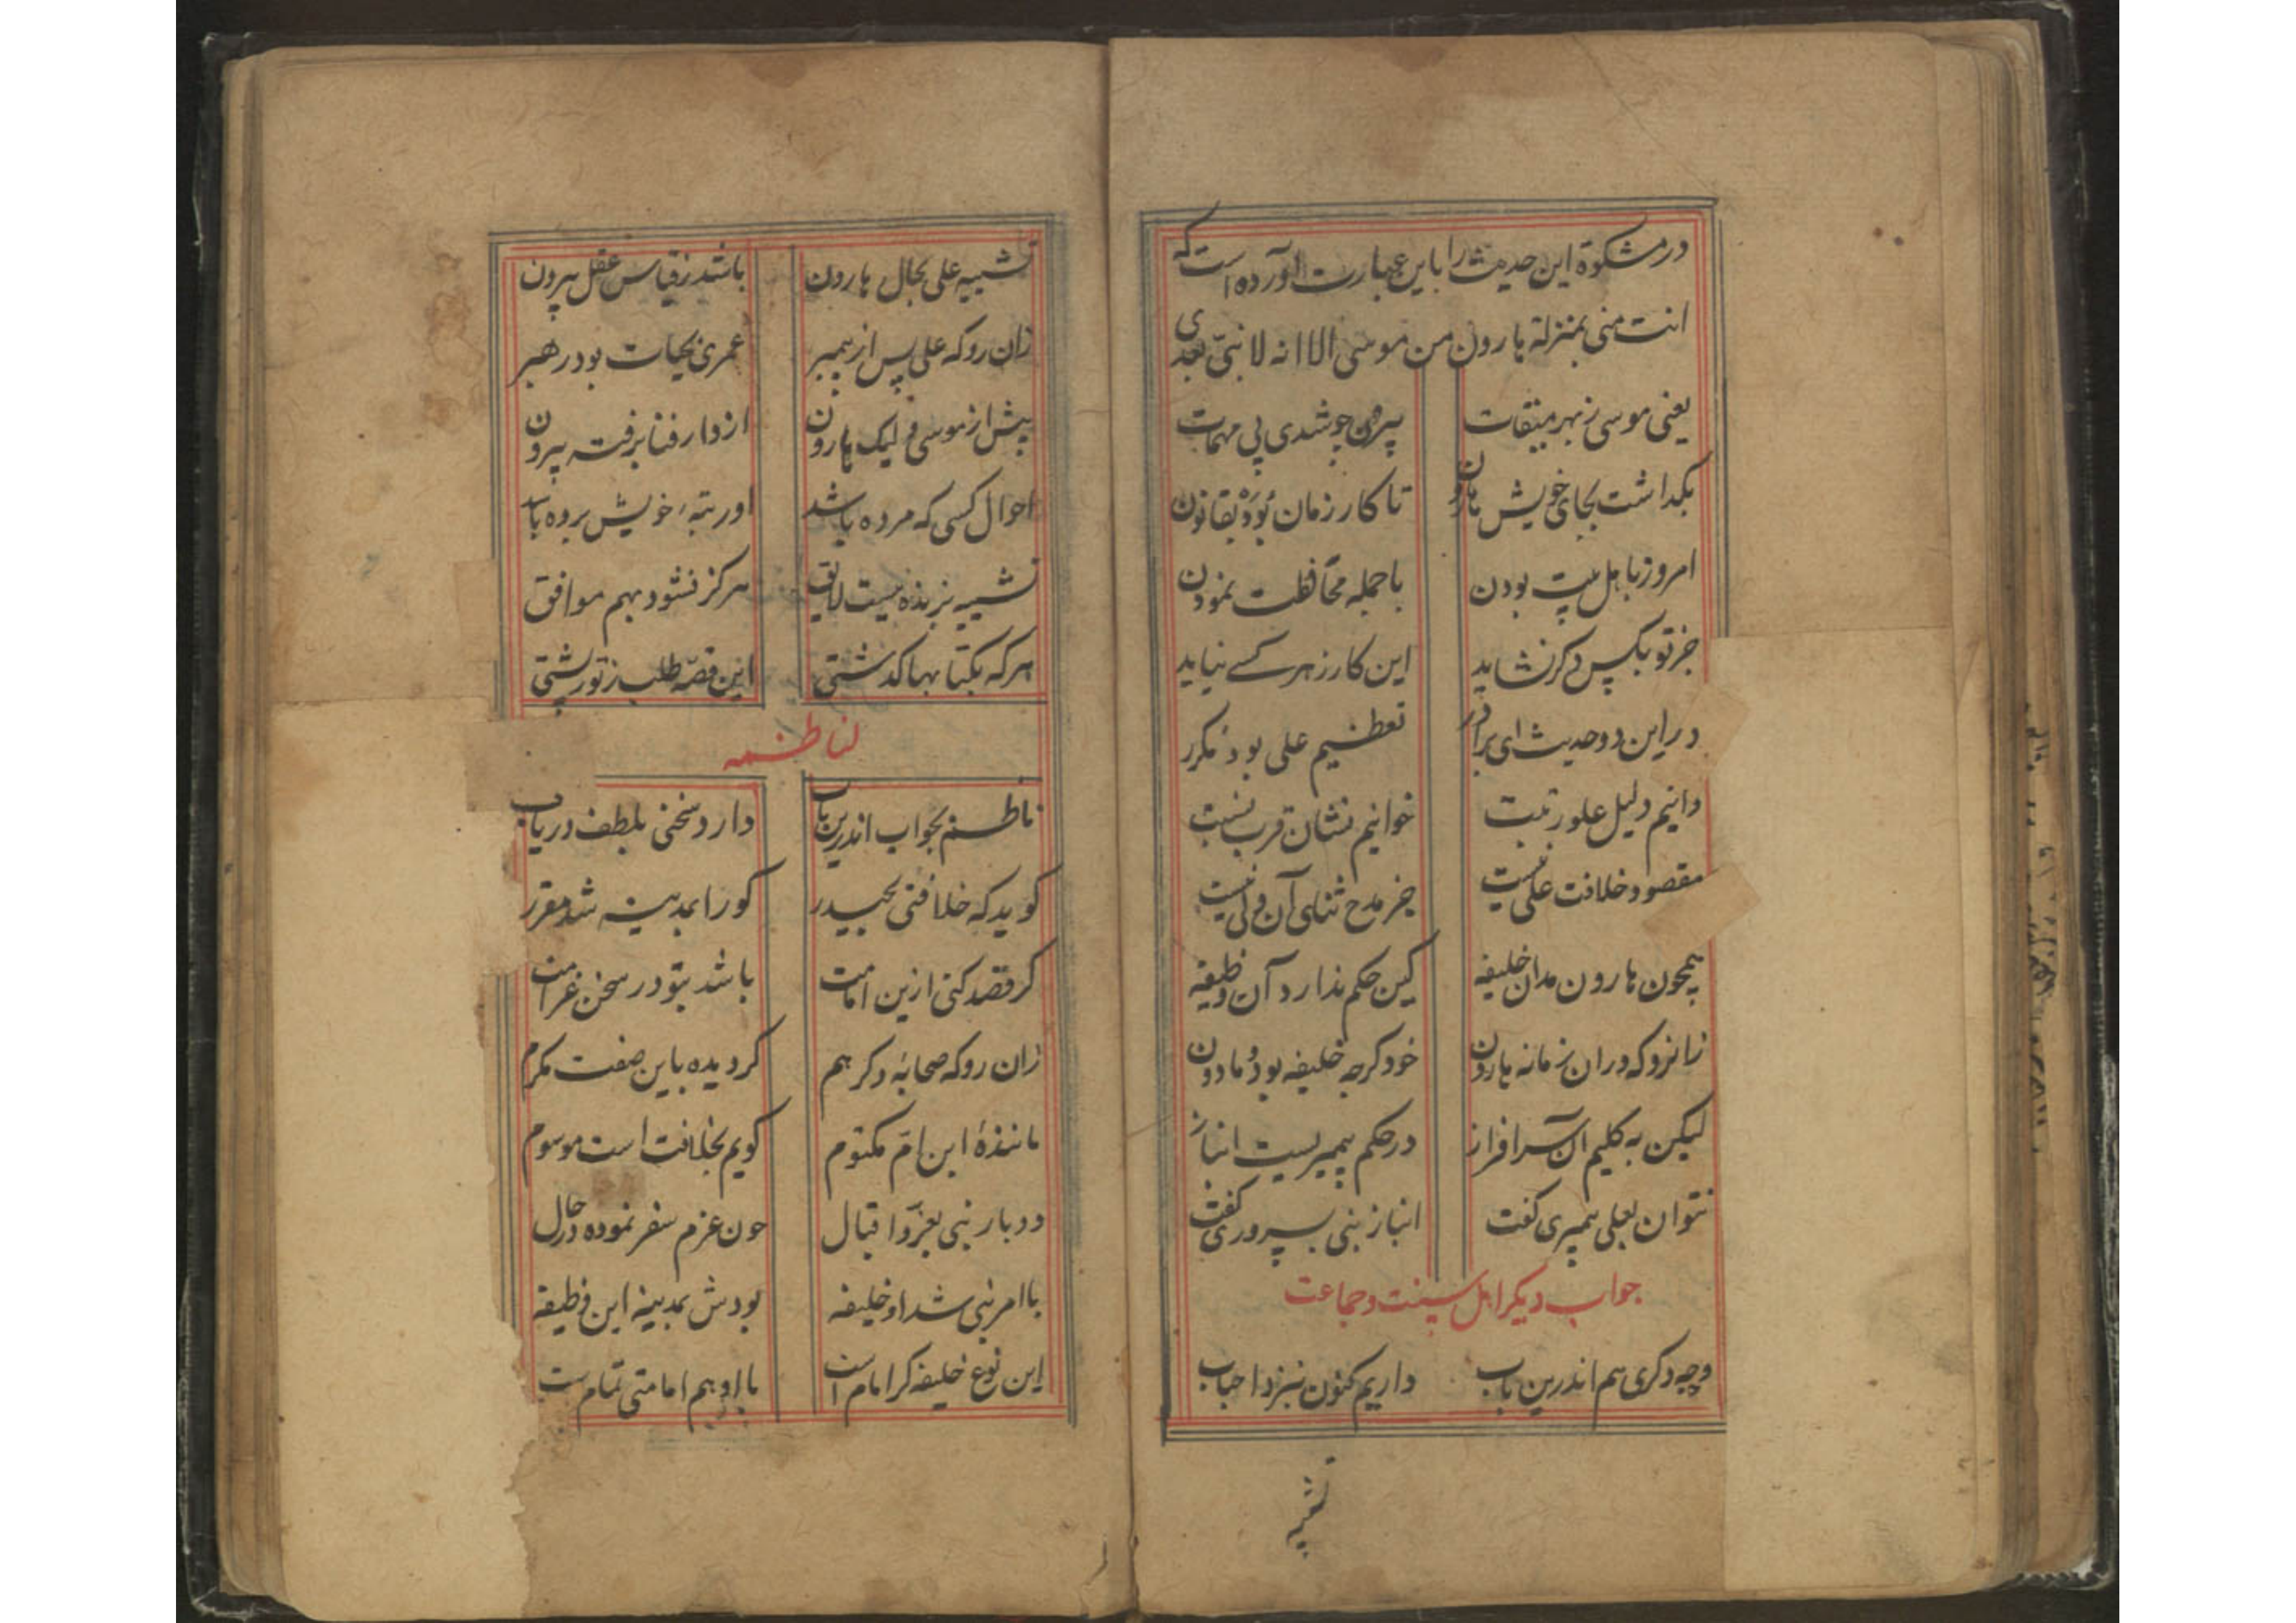 در مشکوة این حدیث را باین عبارت آورده است که
انت منی بمنزلة هارون من موسی الا انه لا نبیّ بعدی
یعنی موسی ز بهر میقات بیرون چو شدی پی مهمات
بکذاشت بجای خویش هارون تا کار زمان بُوَدْ بقانون
امروز باهل بیت بودن با جمله محافظت نمودن
جز تو بکس دکر نشاید این کار ز هر کسے نیاید
در این دو حدیث ای برادر تعظیم علی بود مکرر
دانیم دلیل علو رتبت خوانیم نشان قرب نسبت
مقصود خلافت علی نیست جز مدح ثنای آن ولی نیست
همچون هارون مدان خلیفه کین حکم ندارد آن وظیفه
زانرو که دران زمانه هارون خود کرچه خلیفه بود و مادون
لیکن به کلیم آن سرافراز در حکم پیمبریست انباز
نتوان بعلی پیمبری کفت انباز نبی بسروری کفت
جواب دیکر اهل سنت و جماعت
وجه دکری هم اندرین باب داریم کنون بنزد احباب
تشبیه
تشبیه علی بحال هارون باشد ز قیاس عقل بیرون
زان رو که علی پس از پیمبر عمری بحیات بود رهبر
پیش از موسی و لیک هارون از دار فنا برفت بیرون
احوال کسی که مرده باشد او رتبهٔ خویش برده باشد
تشبیه بزنده نیست لایق هرکز نشود بهم موافق
هرکه بکتابها کذشتی این قصّه طلب ز تور پشتی
لناظمه
ناظم بجواب اندرین باب دارد سخنی بلطف دریاب
کوید که خلافتی بحیدر کو را بمدینه شد مقرر
کر قصد کنی ازین امامت باشد بتو در سخن غرامت
زان رو که صحابهٔ دکر هم کردیده باین صفت مکرم
مانندهٔ ابن امّ مکتوم کویم بخلافت است موسوم
دو بار نبی بعزّ و اقبال چون عزم سفر نموده در حال
با امر نبی شد او خلیفه بودش بمدینه این وظیفه
این نوع خلیفه کر امام است با او هم امامتی تمام است